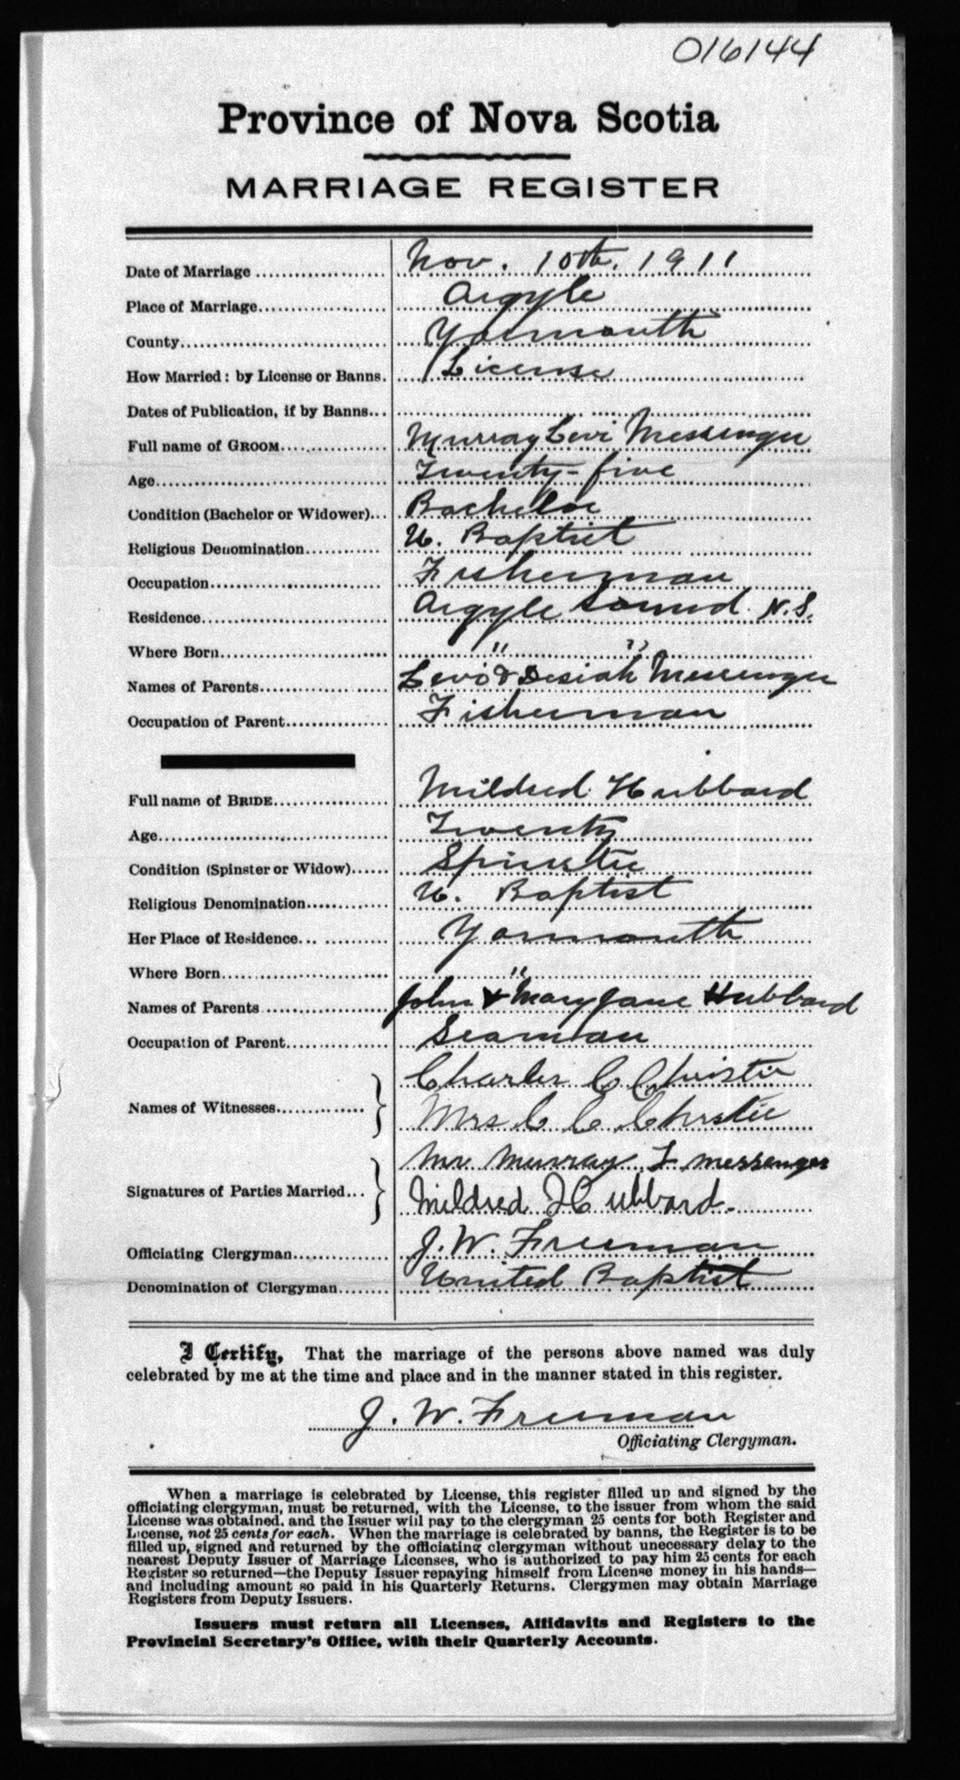 016144
Province of Nova Scotia
MARRIAGE REGISTER
Date of Marriage Nov. 10th, 1911
Place of Marriage Argyle
County Yarmouth
How Married: by License or Banns. License
Dates of Publication, if by Banns
Full name of GROOM Murray Levi Messenger
Age Twenty-five
Condition (Bachelor or Widower) Bachelor
Religious Denomination U. Baptist
Occupation Fisherman
Residence Argyle Sound N.S.
Where Born " "
Names of Parents Levi & Messenger
Occupation of Parent Fisherman
Full name of BRIDE Mildred Hubbard
Age Twenty
Condition (Spinster or Widow) Spinster
Religious Denomination U. Baptist
Her Place of Residence Yarmouth
Where Born "
Names of Parents John & Mary Jane Hubbard
Occupation of Parent Seaman
Names of Witnesses Charles C Christie
Mrs C C Christie
Signatures of Parties Married Mr Murray L messenger
Mildred Hubbard.
Officiating Clergyman J. W. Freeman
Denomination of Clergyman United Baptist
I Certify, That the marriage of the persons above named was duly
celebrated by me at the time and place and in the manner stated in this register.
J. W. Freeman
Officiating Clergyman.
When a marriage is celebrated by License, this register filled up and signed by the
officiating clergyman, must be returned, with the License, to the issuer from whom the said
License was obtained, and the Issuer will pay to the clergyman 25 cents for both Register and
License, not 25 cents for each. When the marriage is celebrated by banns, the Register is to be
filled up, signed and returned by the officiating clergyman without unecessary delay to the
nearest Deputy Issuer of Marriage Licenses, who is authorized to pay him 25 cents for each
Register so returned—the Deputy Issuer repaying himself from License money in his hands—
and including amount so paid in his Quarterly Returns. Clergymen may obtain Marriage
Registers from Deputy Issuers.
Issuers must return all Licenses, Affidavits and Registers to the
Provincial Secretary's Office, with their Quarterly Accounts.